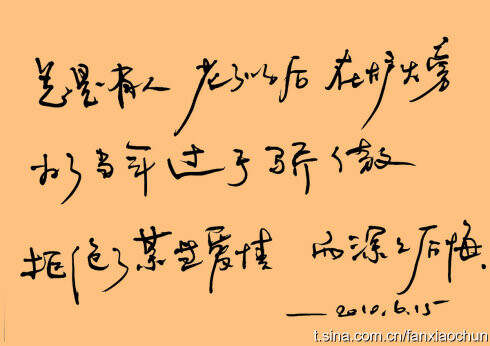 总是有人 老了以后 在炉火旁
为了当年过于骄傲
拒绝了某些爱情 而深深后悔.
——2010.6.15
t.sina.com.cn/fanxiaochun